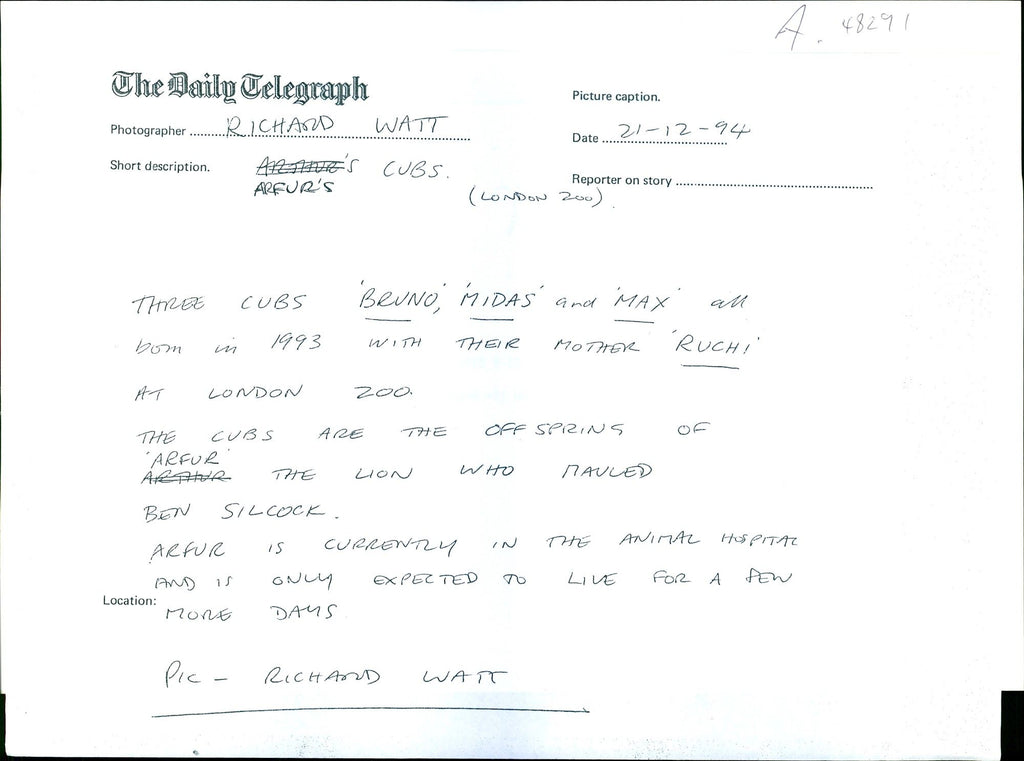 A. 48291
The Daily Telegraph
Picture caption.
Photographer RICHARD WATT
Date 21-12-94
Short description. ARTHUR'S CUBS.
ARFUR'S
Reporter on story
(LONDON ZOO).
THREE CUBS 'BRUNO', 'MIDAS' and 'MAX' all
born in 1993 WITH THEIR MOTHER 'RUCHI'
AT LONDON ZOO.
THE CUBS ARE THE OFFSPRING OF
'ARFUR'
ARTHUR THE LION WHO MAULED
BEN SILCOCK.
ARFUR IS CURRENTLY IN THE ANIMAL HOSPITAL
AND IS ONLY EXPECTED TO LIVE FOR A FEW
Location:
MORE DAYS
PIC - RICHARD WATT